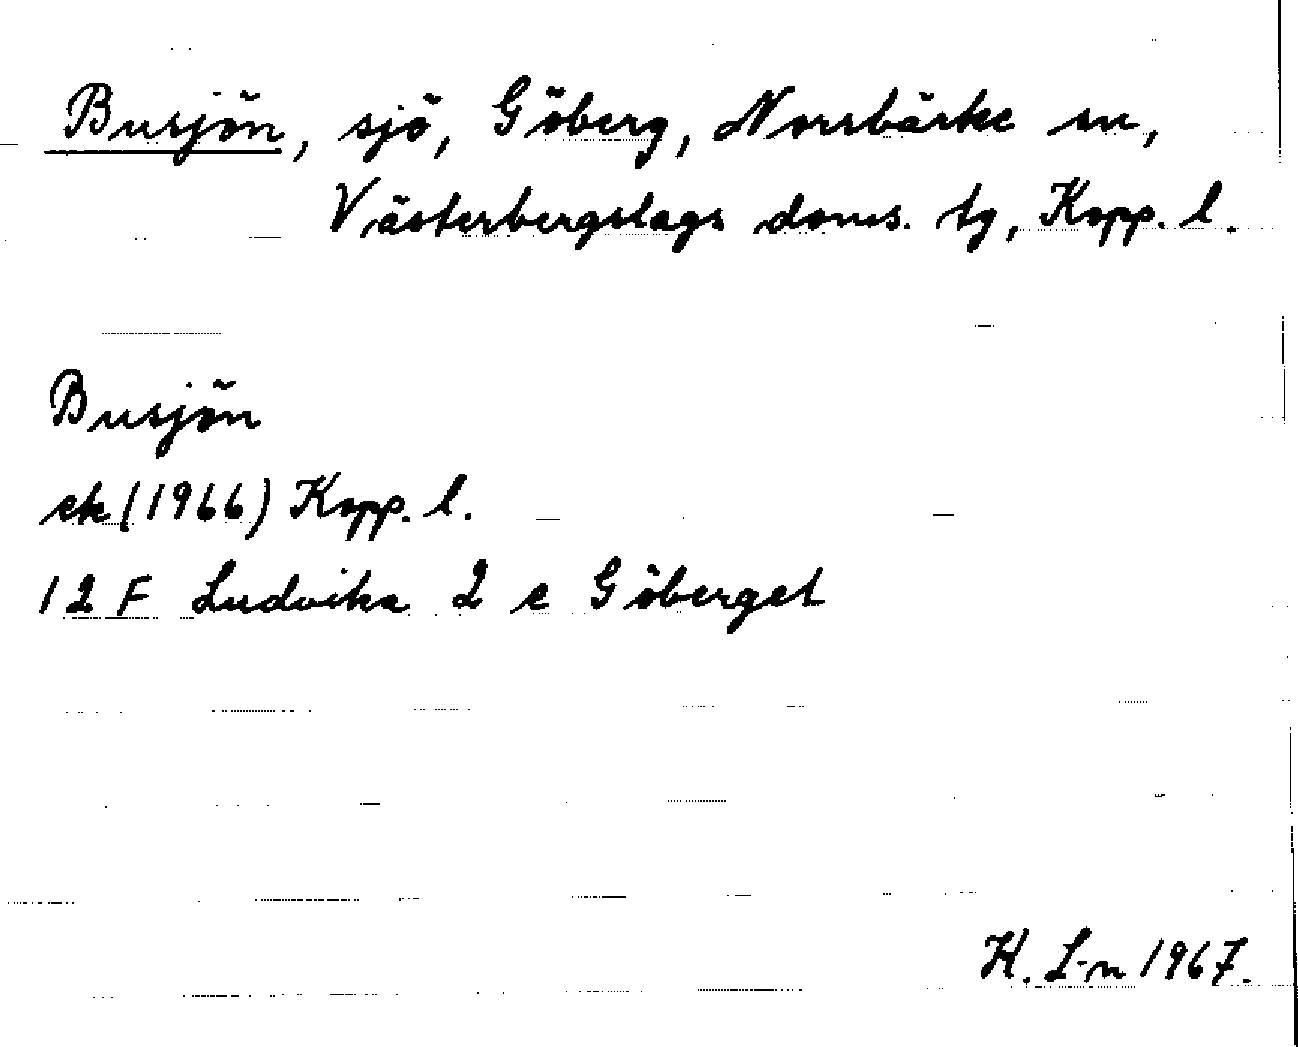 Busjön, sjö, Göberg, Norrbärke sn,
Västerbergslags doms. tg, Kopp. l.
Busjön
ek (1966) Kopp. l.
12 F Ludvika 2 e Göberget
H. L-n 1967.